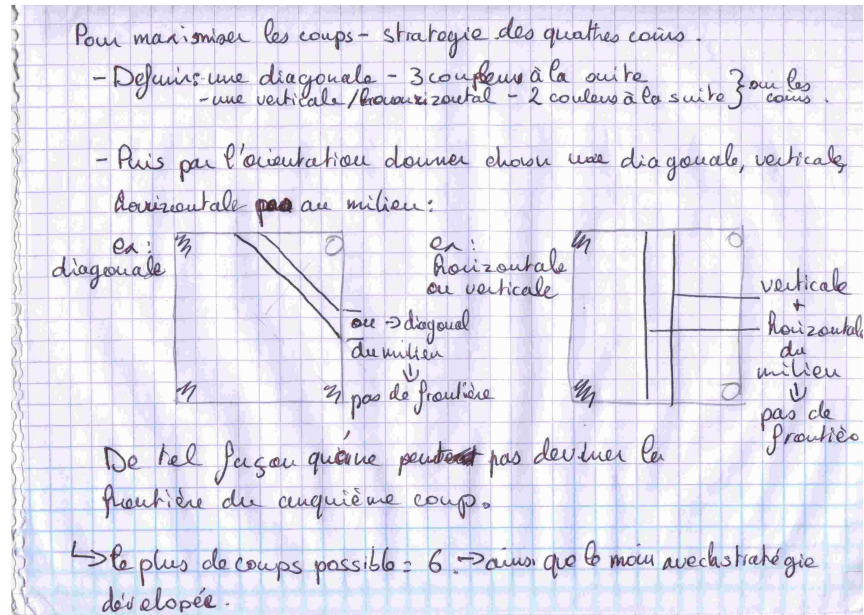 Pour maximiser les coups - strategie des quattres coins.
- Definir - une diagonale - 3 couleurs à la suite
- une verticale/horizontal - 2 couleurs à la suite } sur les coins.
- Puis par l'orientation donner choisir une diagonale, verticale,
horizontale au milieu:
ex:
diagonale
ou → diagonal
du milieu
⇓
pas de frontière
ex:
horizontale
ou verticale
verticale
+
horizontale
du
milieu
⇓
pas de
frontière
De tel façon qu'on ne peut pas deviner la
frontière du cinquième coup.
↳ le plus de coups possible = 6. → ainsi que le moin avec la stratégie
dévelopée.